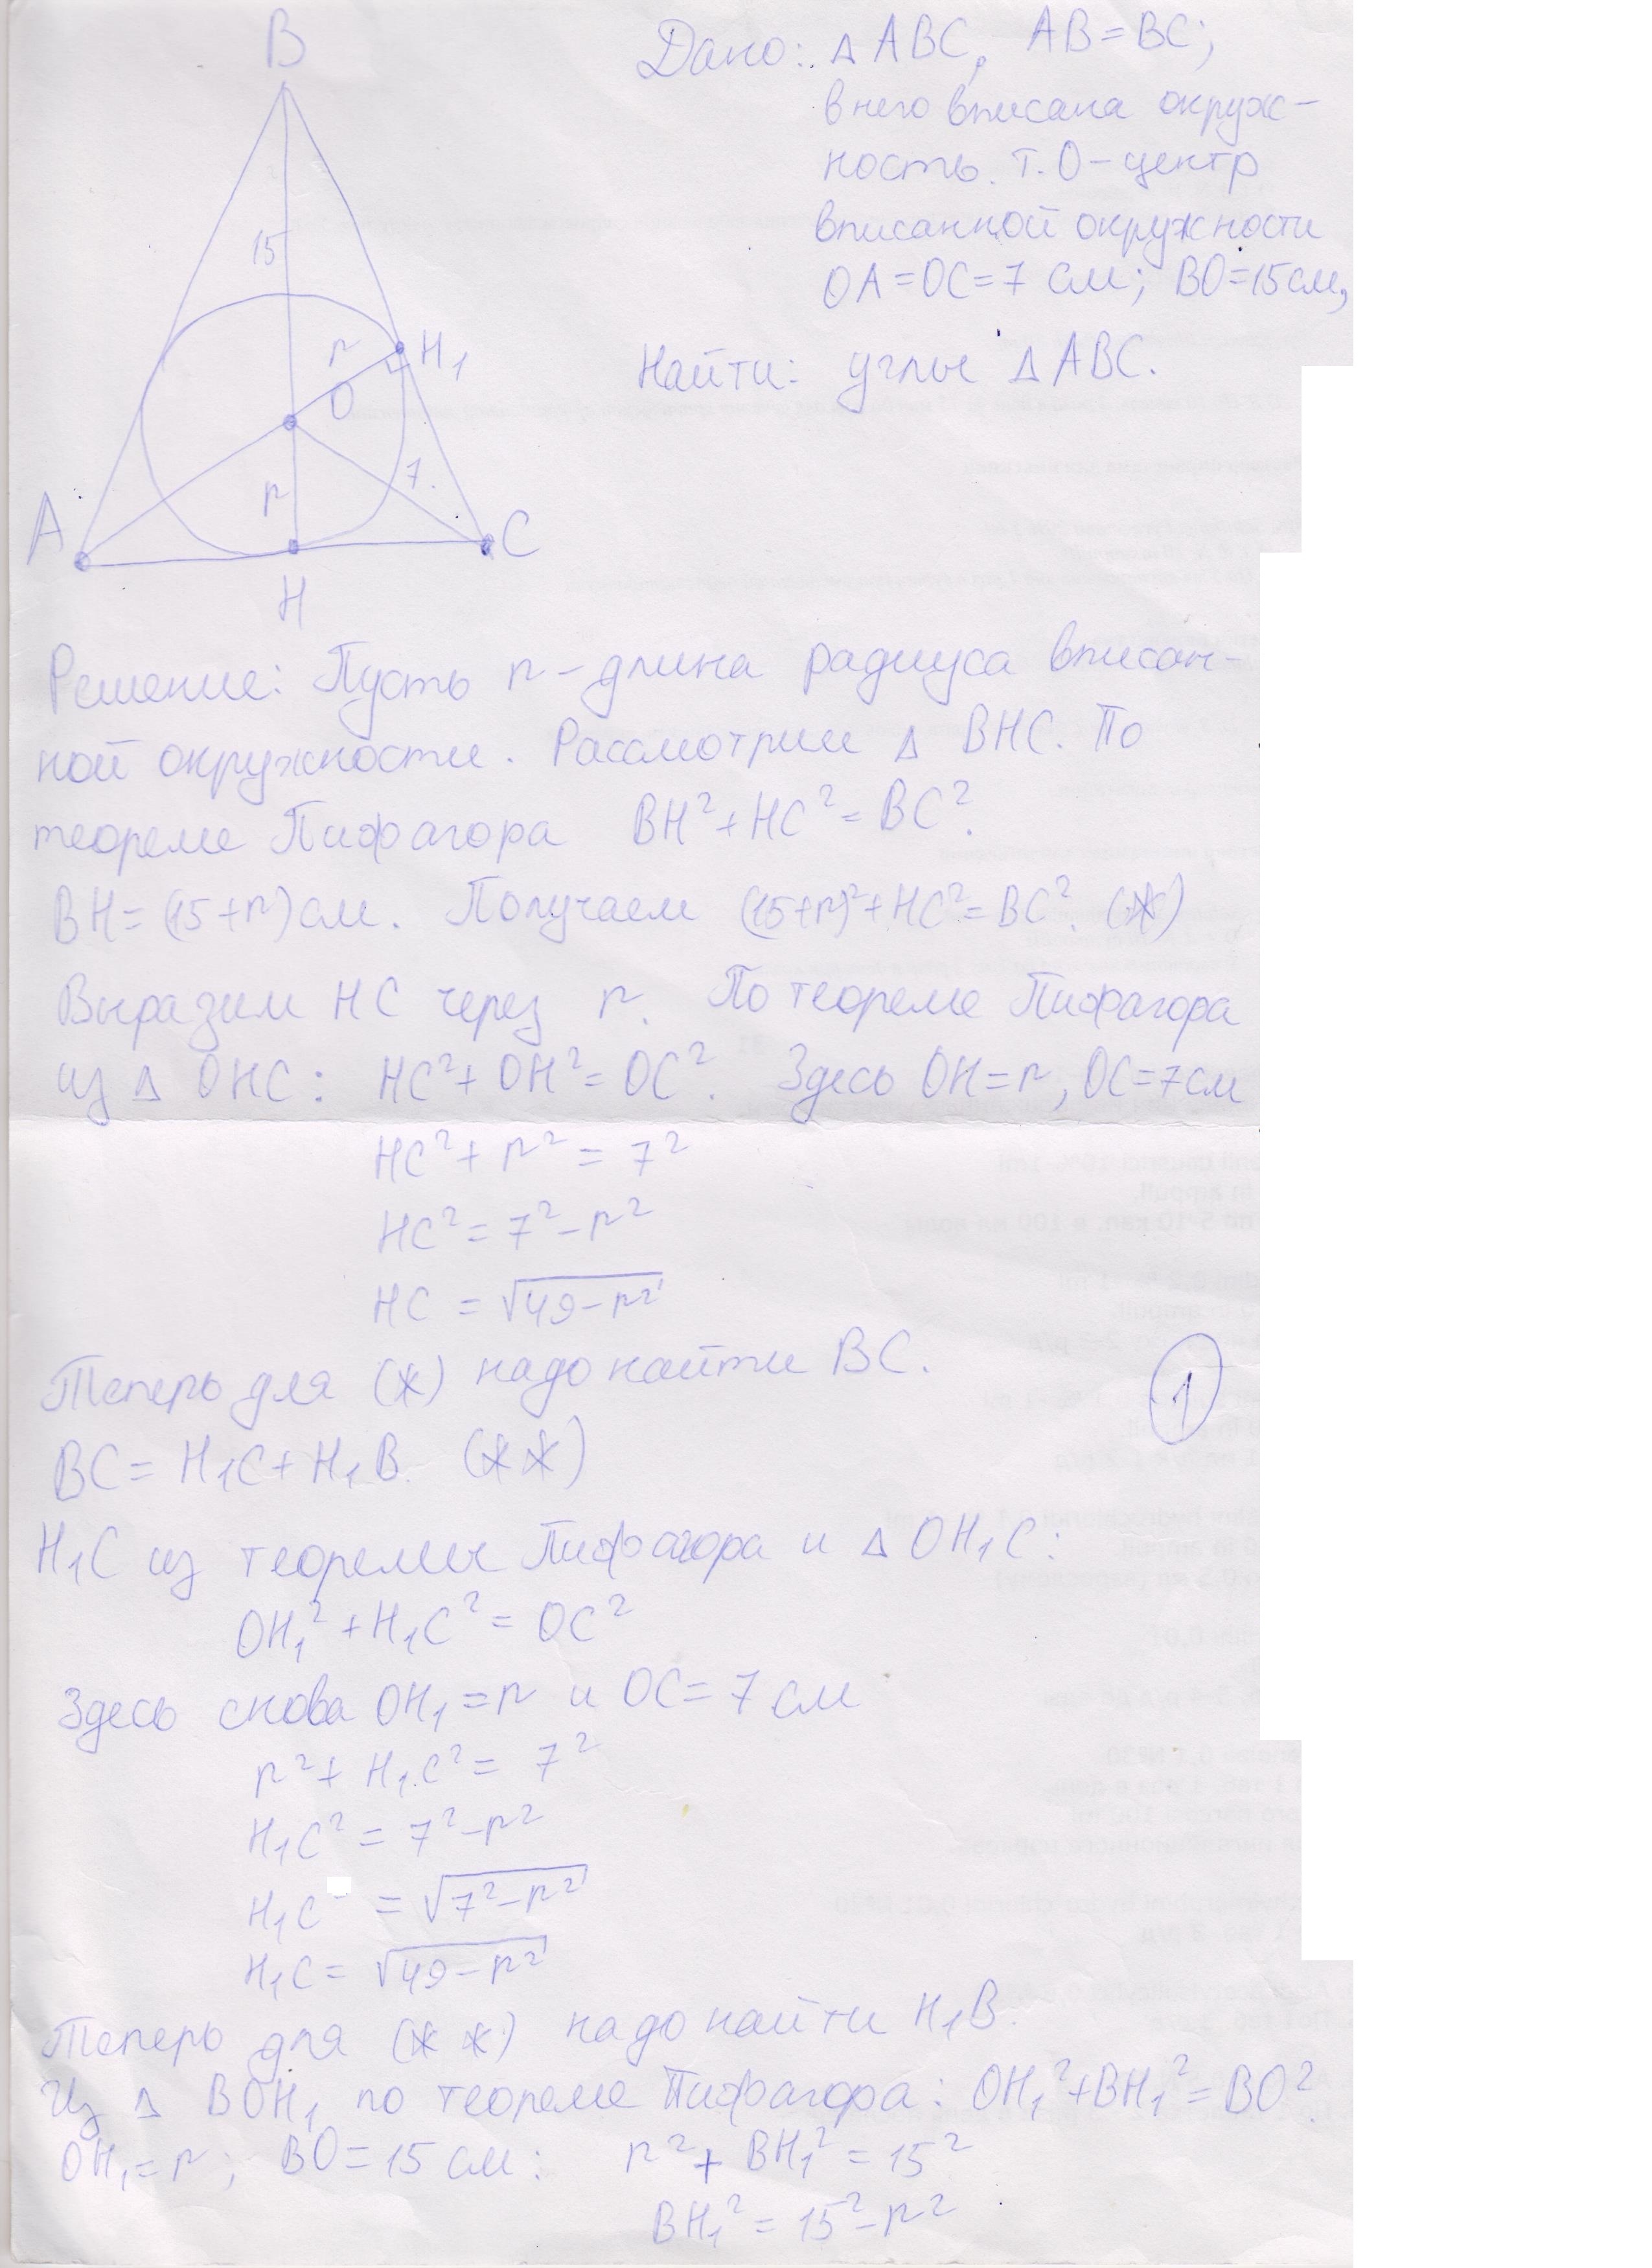 B
15
r
H₁
O
r
7
A
C
H
Дано: △ABC, AB=BC;
в него вписана окруж-
ность. т. O-центр
вписанной окружности
OA=OC=7 см; BO=15см,
Найти: углы △ABC.
Решение: Пусть r-длина радиуса вписан-
ной окружности. Рассмотрим △ BHC. По
теореме Пифагора BH²+HC²=BC².
BH=(15+r)см. Получаем (15+r)²+HC²=BC². (*)
Выразим HC через r. По теореме Пифагора
из △ OHC: HC²+OH²=OC². Здесь OH=r, OC=7см
HC²+r²=7²
HC²=7²-r²
HC=√(49-r²)
Теперь для (*) надо найти BC.
1
BC=H₁C+H₁B. (**)
H₁C из теоремы Пифагора и △OH₁C:
OH₁²+H₁C²=OC²
Здесь снова OH₁=r и OC=7см
r²+H₁C²=7²
H₁C²=7²-r²
H₁C=√(7²-r²)
H₁C=√(49-r²)
Теперь для (**) надо найти H₁B.
Из △ BOH₁ по теореме Пифагора: OH₁²+BH₁²=BO².
OH₁=r; BO=15 см: r²+BH₁²=15²
BH₁²=15²-r²